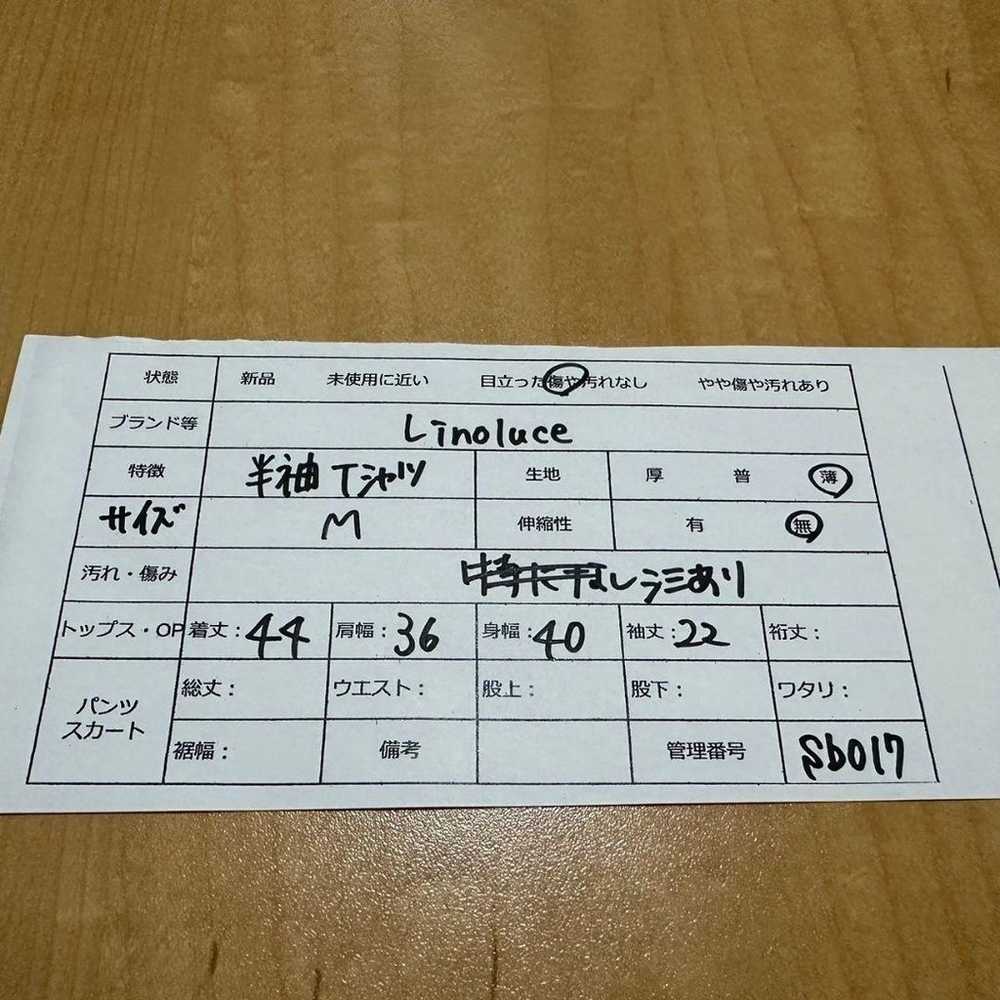 状態 新品 未使用に近い 目立った傷や汚れなし やや傷や汚れあり
ブランド等 Linoluce
特徴 半袖Tシャツ 生地 厚 普 薄
サイズ M 伸縮性 有 無
汚れ・傷み 特に無し シミあり
トップス・OP 着丈：44 肩幅：36 身幅：40 袖丈：22 裄丈：
パンツ スカート 総丈： ウエスト： 股上： 股下： ワタリ：
裾幅： 備考 管理番号 Sb017